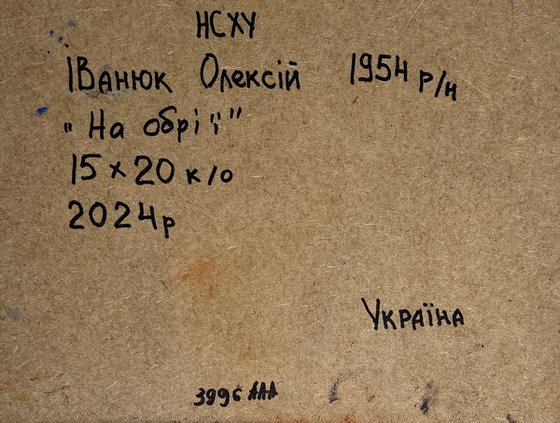 НСХУ
Іванюк Олексій 1954 р/н
"На обрії"
15 x 20 к/о
2024р
Україна
399с ААА